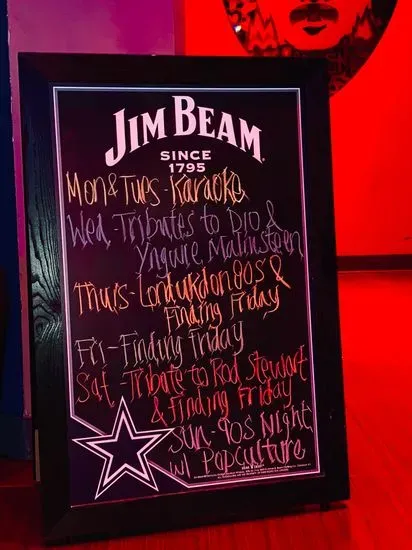 JIM BEAM
SINCE
1795
Mon & Tues - Karaoke
Wed - Tributes to Dio &
Yngwie Malmsteen
Thurs - &
Finding Friday
Fri - Finding Friday
Sat - Tribute to Rod Stewart
& Finding Friday
Sun - 90s Night
w/ Popculture